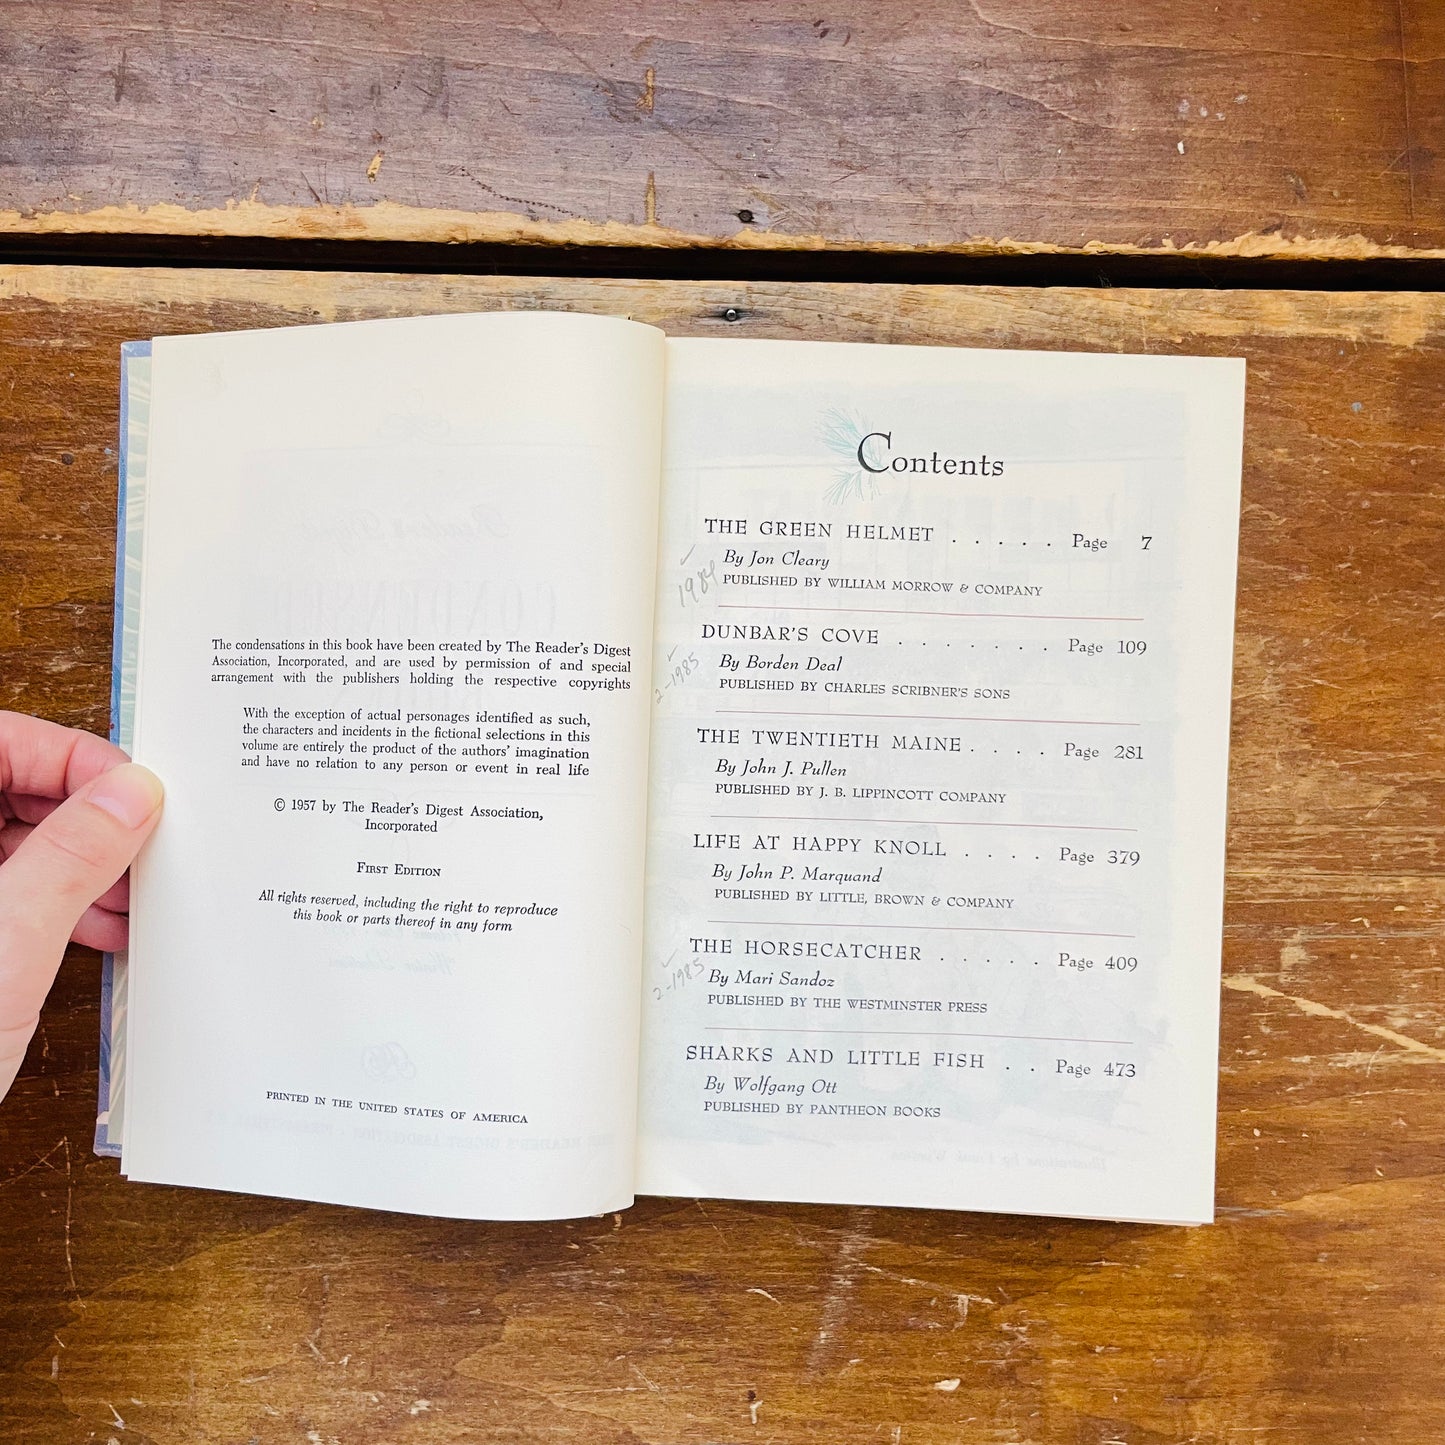 The condensations in this book have been created by The Reader's Digest
Association, Incorporated, and are used by permission of and special
arrangement with the publishers holding the respective copyrights
With the exception of actual personages identified as such,
the characters and incidents in the fictional selections in this
volume are entirely the product of the authors' imagination
and have no relation to any person or event in real life
© 1957 by The Reader's Digest Association,
Incorporated
First Edition
All rights reserved, including the right to reproduce
this book or parts thereof in any form
PRINTED IN THE UNITED STATES OF AMERICA
Contents
THE GREEN HELMET . . . . . Page 7
By Jon Cleary
1984
PUBLISHED BY WILLIAM MORROW & COMPANY
DUNBAR'S COVE . . . . . . . Page 109
By Borden Deal
2-1985
PUBLISHED BY CHARLES SCRIBNER'S SONS
THE TWENTIETH MAINE . . . . Page 281
By John J. Pullen
PUBLISHED BY J. B. LIPPINCOTT COMPANY
LIFE AT HAPPY KNOLL . . . . Page 379
By John P. Marquand
PUBLISHED BY LITTLE, BROWN & COMPANY
THE HORSECATCHER . . . . . Page 409
By Mari Sandoz
2-1985
PUBLISHED BY THE WESTMINSTER PRESS
SHARKS AND LITTLE FISH . . Page 473
By Wolfgang Ott
PUBLISHED BY PANTHEON BOOKS